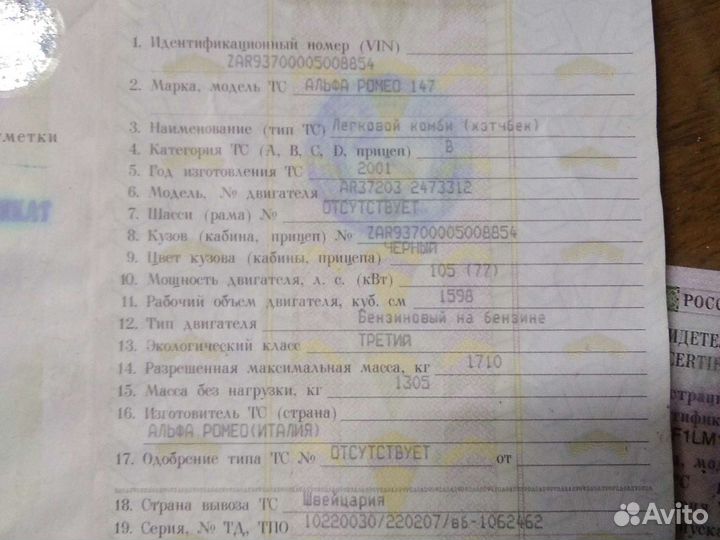 1. Идентификационный номер (VIN)
ZAR93700005008854
2. Марка, модель ТС АЛЬФА РОМЕО 147
метки
3. Наименование (тип ТС) Легковой комби (хэтчбек)
4. Категория ТС (A, B, C, D, прицеп) B
5. Год изготовления ТС 2001
6. Модель, № двигателя AR37203 2473312
7. Шасси (рама) № ОТСУТСТВУЕТ
8. Кузов (кабина, прицеп) № ZAR93700005008854
9. Цвет кузова (кабины, прицепа) ЧЕРНЫЙ
10. Мощность двигателя, л. с. (кВт) 105 (77)
11. Рабочий объем двигателя, куб. см 1598
12. Тип двигателя Бензиновый на бензине
13. Экологический класс ТРЕТИЙ
14. Разрешенная максимальная масса, кг 1710
15. Масса без нагрузки, кг 1305
16. Изготовитель ТС (страна)
АЛЬФА РОМЕО(ИТАЛИЯ)
17. Одобрение типа ТС № ОТСУТСТВУЕТ от
18. Страна вывоза ТС Швейцария
19. Серия, № ТД, ТПО 10220030/220207/в6-1062462
РОСС
ИДЕТЕЛ
CERTIF
Avito